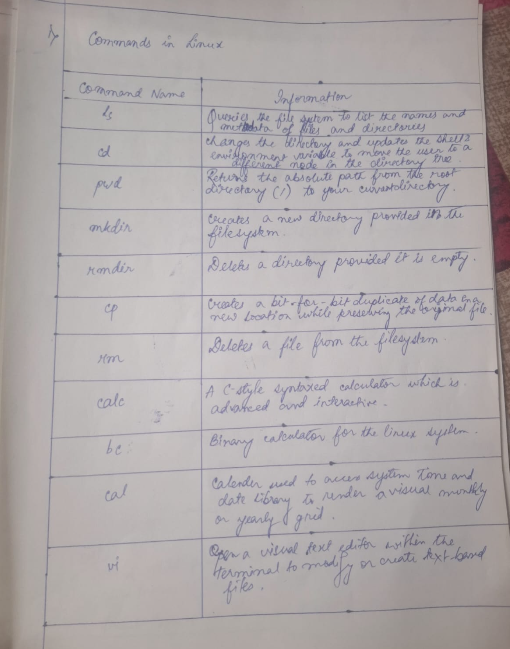 1)
Commands in Linux
Command Name
Information
ls
Queries the file system to list the names and
metadata of files and directories
cd
changes the directory and updates the shell's
environment variable to move the user to a
different node in the directory tree.
pwd
Returns the absolute path from the root
directory (/) to your current directory.
mkdir
creates a new directory provided in the
filesystem.
rmdir
Deletes a directory provided it is empty.
cp
Creates a bit-for-bit duplicate of data in a
new location while preserving the original file.
rm
Deletes a file from the filesystem.
calc
A C-style syntaxed calculator which is
advanced and interactive.
bc
Binary calculator for the linux system.
cal
Calender used to access system time and
date library to render a visual monthly
or yearly grid.
vi
Open a visual text editor within the
terminal to modify or create text-based
files.